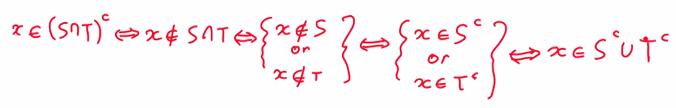 x ∈ (S∩T)ᶜ ⇔ x ∉ S∩T ⇔ { x ∉ S or x ∉ T } ⇔ { x ∈ Sᶜ or x ∈ Tᶜ } ⇔ x ∈ Sᶜ ∪ Tᶜ